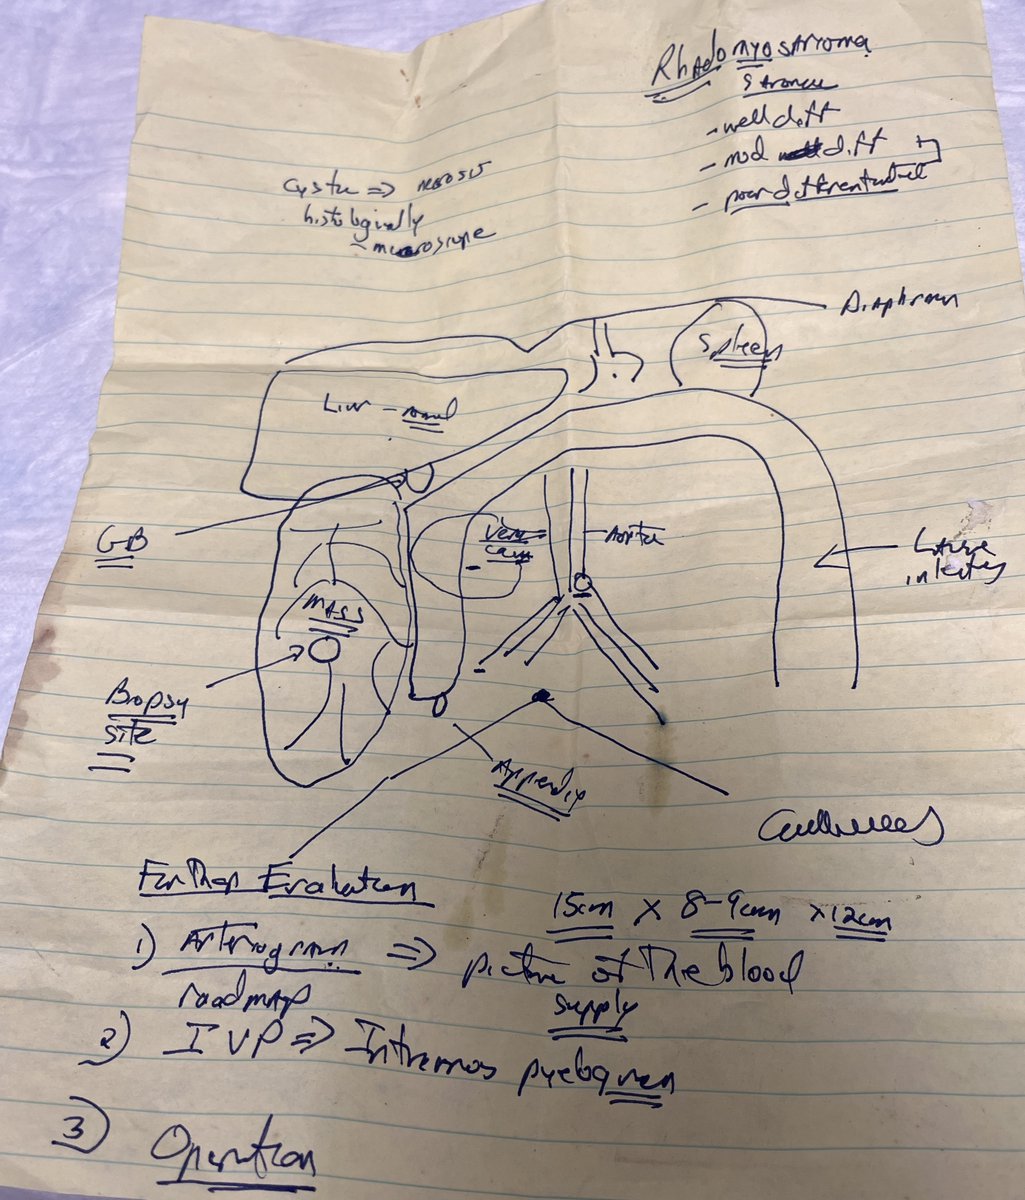 Rhabdomyosarcoma
- well diff
- mod diff
- poor differentiated
cystic => necrosis
histologically
- microscope
Diaphram
Spleen
Liver -
GB
Vena
cava
Aorta
Large
intestines
MASS
Biopsy
site
Appendix
Further Evaluation
15cm x 8-9cm x 12cm
1) Arteriogram => picture of The blood
roadmap
supply
2) IVP => Intravenous pyelogram
3) Operation